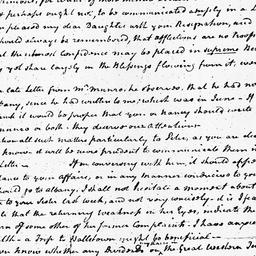 & perhaps ought not, to be communicated abruptly in a L
implored my dear Daughter with your Resignation, and
should always be remembered, that afflictions are no Proofs
the utmost Confidence may be placed in supreme Ben
largely in the Blessings flowing from it, was
late letter from Mr. Munro, he observes, that he had no
since he had written to me, which was in June - If
it would be proper that you or Nancy should write
Munro or both: they deserve our attention
all such matters particularly to Peter, as you are de
know, it will be more prudent to communicate them in
Letter - If in conversing with him, it should app
to your affairs, or in any manner conducive to yo
should go to albany, I shall not hesitate a moment about
to your Sister last week, and not very concisely. It is
that the returning weakness in her Eyes, indicate the
of some other of her former Complaints - I have advise
a Trip to Balltown might be beneficial -
know whether any Dividends on the Great Western Tu